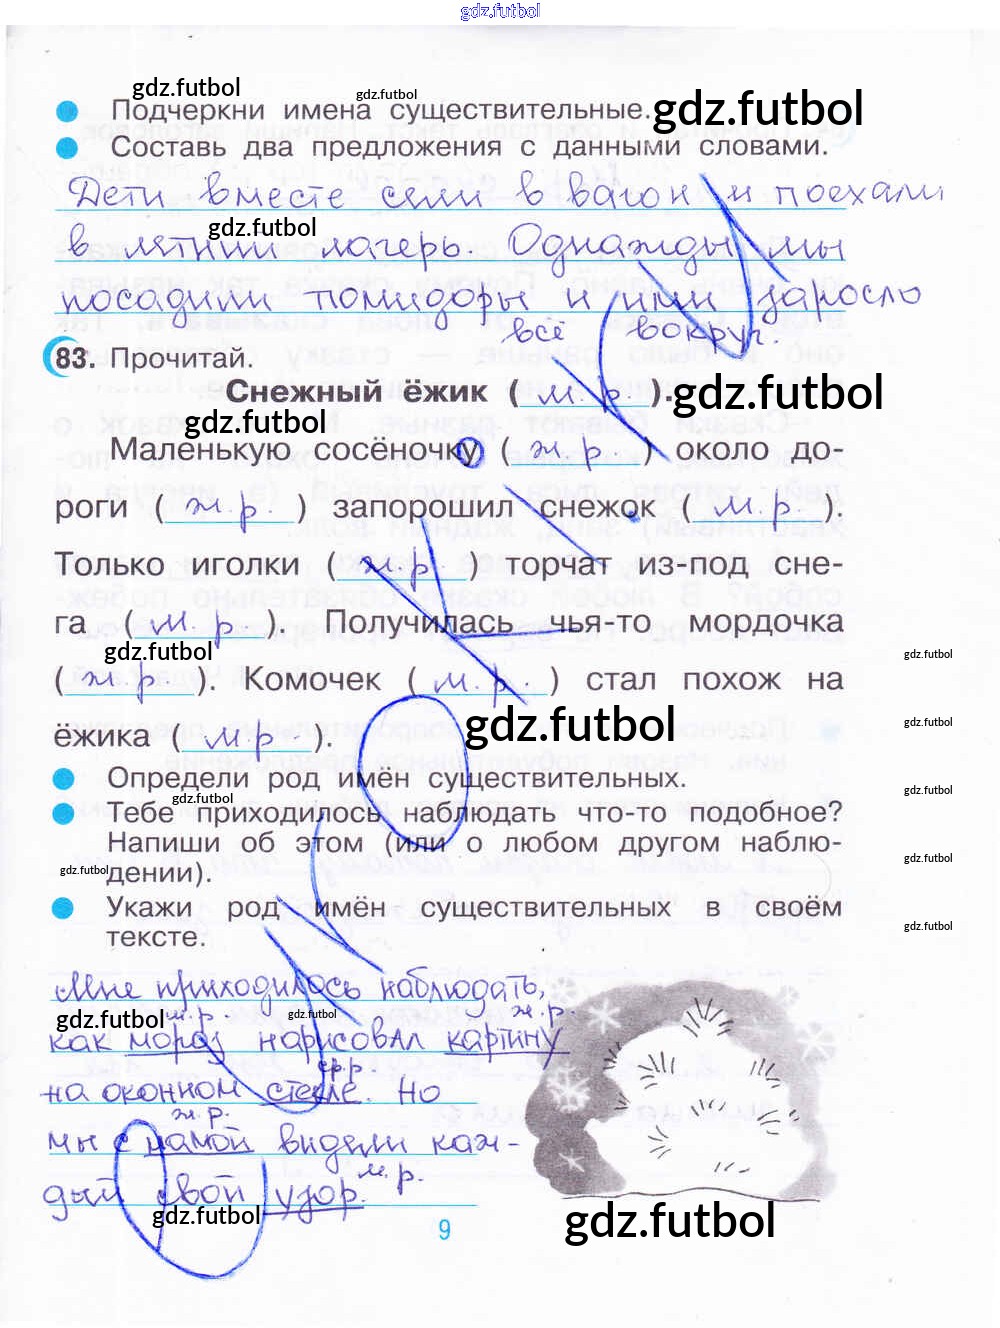 gdz.futbol
gdz.futbol
gdz.futbol
Подчеркни имена существительные.
gdz.futbol
Составь два предложения с данными словами.
Дети вместе сели в вагон и поехали
gdz.futbol
в летний лагерь. Однажды мы
посадили помидоры и ими заросло
всё вокруг.
83. Прочитай.
Снежный ёжик (м. р.).
gdz.futbol
gdz.futbol
Маленькую сосёночку (ж. р.) около до-
роги (ж. р.) запорошил снежок м. р. ).
Только иголки (ж. р) торчат из-под сне-
га (м. р.). Получилась чья-то мордочка
gdz.futbol
gdz.futbol
(ж р.). Комочек (м. р.) стал похож на
gdz.futbol
gdz.futbol
ёжика (м. р.).
Определи род имён существительных.
gdz.futbol
gdz.futbol
Тебе приходилось наблюдать что-то подобное?
Напиши об этом (или о любом другом наблю-
gdz.futbol
gdz.futbol
дении).
Укажи род имён существительных в своём
gdz.futbol
тексте.
Мне приходилось наблюдать,
gdz.futbol
м. р.
gdz.futbol
ж. р.
как мороз нарисовал картину
ср. р
на оконном стекле. Но
ж. р.
мы с мамой видели каж-
м. р.
дый свой узор.
gdz.futbol
gdz.futbol
9